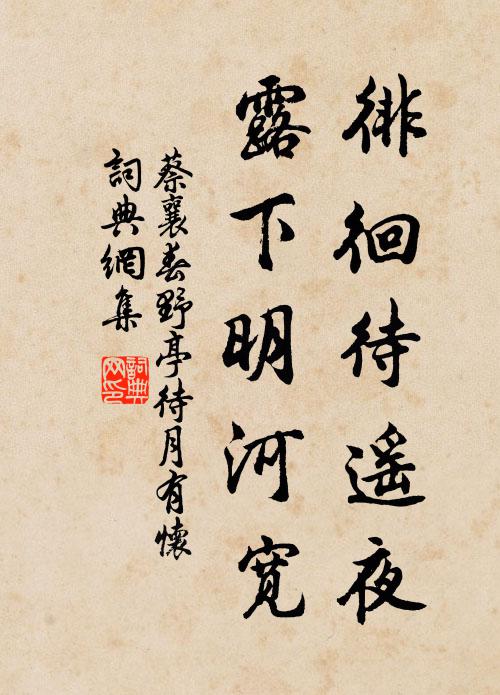 徘徊待遥夜
露下明河寬
蔡襄春野亭待月有懷
詞典網集
詞典
网印